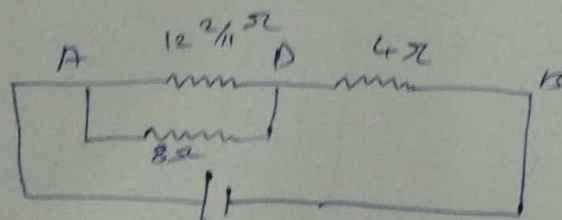 12 2/11 Ω
A D 4Ω B
8Ω